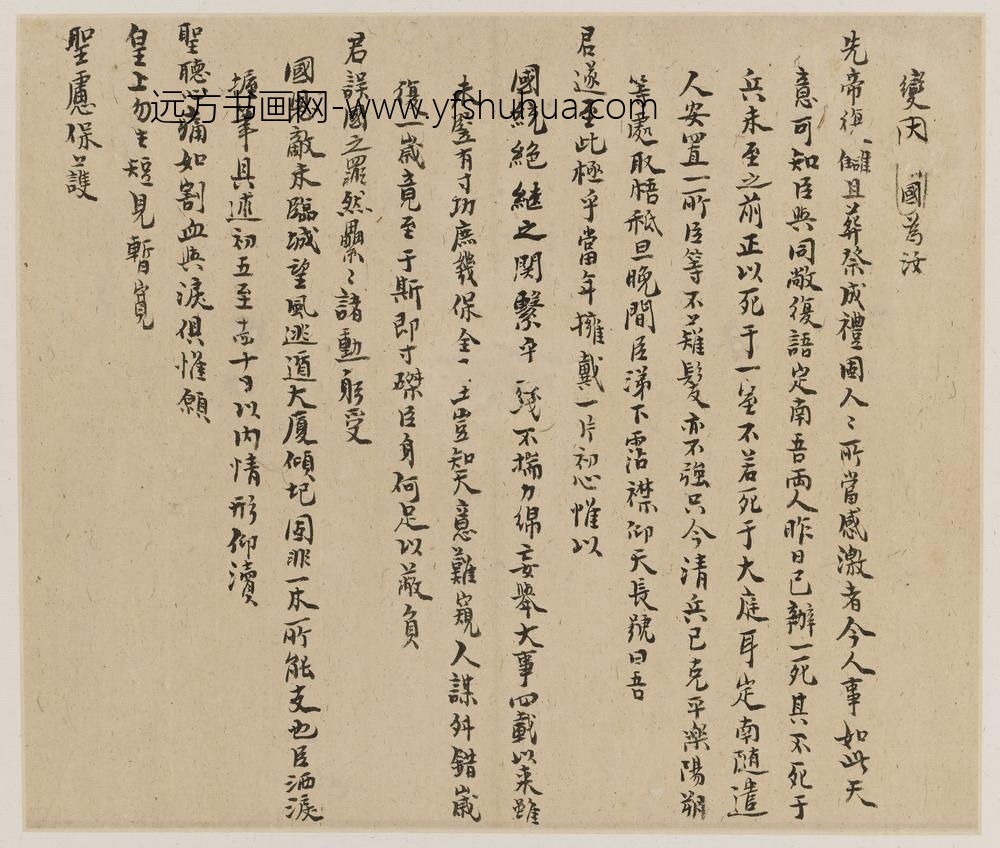 變因國為汝
先帝復讎且葬祭成禮固人〻所當感激者今人事如此天
意可知臣與同敞復語定南吾兩人昨日已辦一死其不死于
兵未至之前正以死于一室不若死于大庭耳定南隨遣
人安置一所臣等不薙髮亦不強只今清兵已克平樂陽朔
等處取梧祗旦晚間臣涕下霑襟仰天長號曰吾
君遂至此極乎當年擁戴一片初心惟以
國統絕繼之関繫乎綫不揣力綿妄舉大事四載以来雖
未盡有寸功庶幾保全一土豈知天意難窺人謀舛錯歲
復一歲竟至于斯即寸磔臣身何足以蔽負
君誤國之罪然纍〻諸勳躬受
國恩敵未臨城望風逃遁大廈傾圮固非一木所能支也臣洒淚
握筆具述初五至十四十日以內情形仰瀆
聖聽心痛如割血與淚俱惟願
皇上勿生短見暫寬
聖慮保護
远方书画网-www.yfshuhua.com